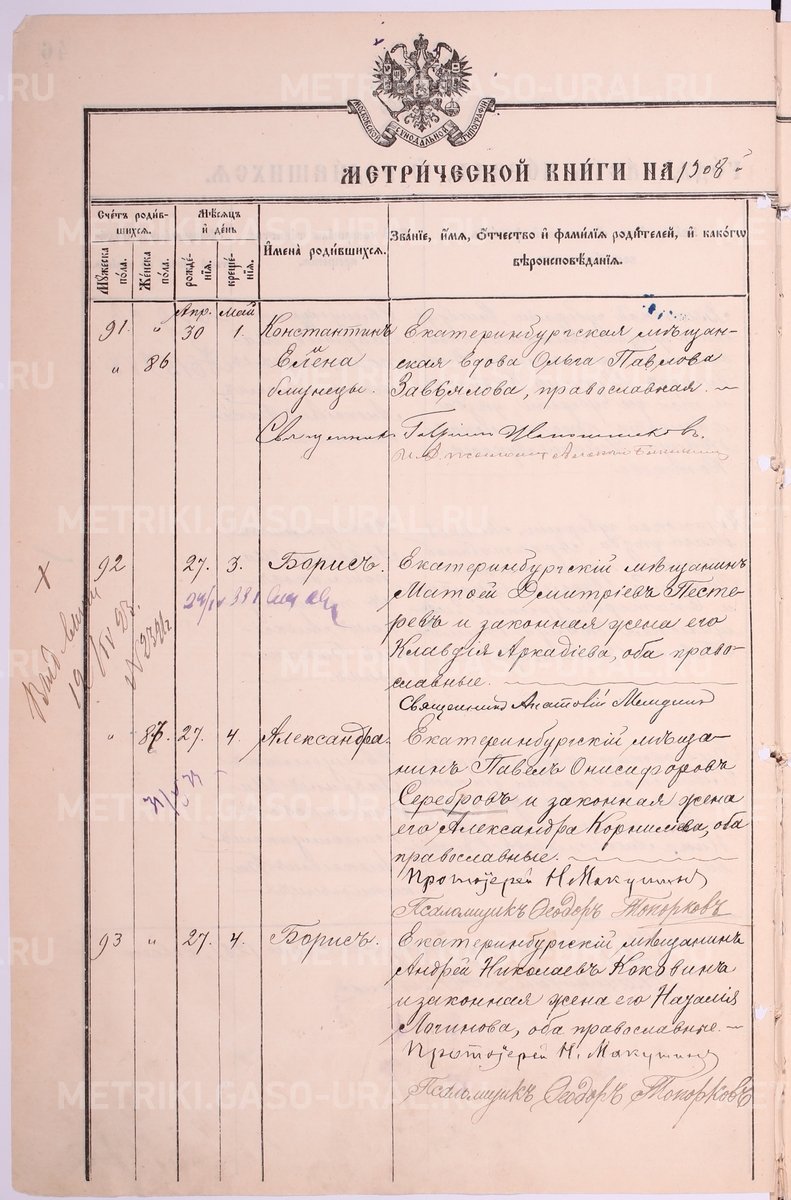 МОСКОВСКОЙ СѴНОДАЛЬНОЙ ТИПОГРАФІИ
МЕТРИ́ЧЕСКОЙ КНИ́ГИ НА 1908 г
Счетъ роди́вшихся.
Мꙋжеска по́ла.
Же́нска по́ла.
Мѣсяцъ и́ де́нь
рожде́нїѧ.
креще́нїѧ.
И҆мена̀ роди́вшихсѧ.
Зва́нїе, и҆́мѧ, ѻ҆́тчество и҆ фами́лїѧ роди́телей, и҆ како́гѡ вѣроисповѣ́данїѧ.
Апр. Май
91. " 30 1. Константинъ Екатеринбургская мѣщан-
" 86 и Елена ская вдова Ольга Павлова
близнецы. Завьялова, православная.
Священникъ
92 27. 3. Борисъ. Екатеринбургскій мѣщанинъ
Матѳей Димитріевъ Песте-
ревъ и законная жена его
Клавдія Аркадіева, оба право-
славные.
Священникъ Анатолій
" 87. 27. 4. Александра. Екатеринбургскій мѣща-
нинъ Павелъ Онисифоровъ
Серебровъ и законная жена
его Александра Корнилова, оба
православные.
Протоіерей Н. Макушинъ
Псаломщикъ Ѳеодоръ Топорковъ
93 " 27. 4. Борисъ. Екатеринбургскій мѣщанинъ
Андрей Николаевъ Коковинъ
и законная жена его Наталія
Логинова, оба православные.
Протоіерей Н. Макушинъ
Псаломщикъ Ѳеодоръ Топорковъ
METRIKI.GASO-URAL.RU